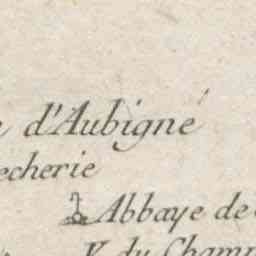 d'Aubigné
echerie
Abbaye de
V. du Champ